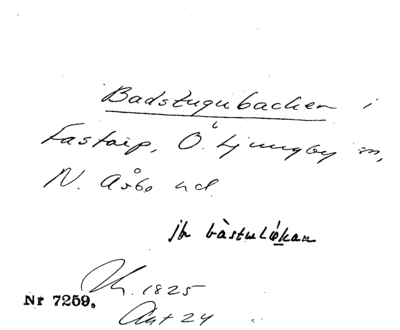 Badstugubacken i
Fastarp, Ö. Ljungby sn,
N. Åsbo hd.
jfr båstulökan
1825
Nr 7259.
Akt 24